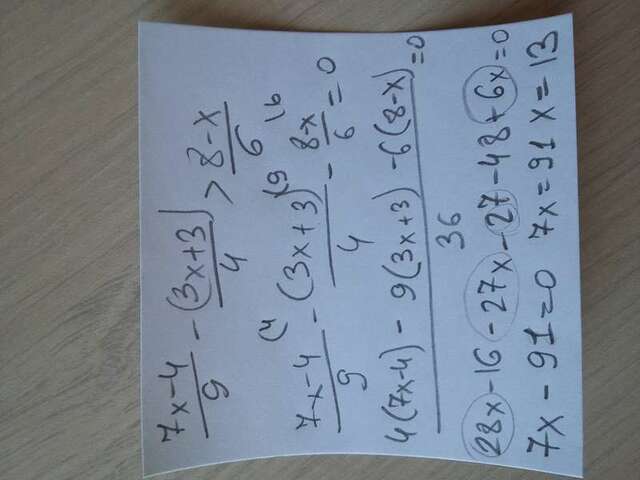 (7x-4)/9 - (3x+3)/4 > (8-x)/6
(7x-4)/9 (4 - (3x+3)/4 (9 - (8-x)/6 (6 = 0
(4(7x-4) - 9(3x+3) - 6(8-x))/36 = 0
28x-16-27x-27-48+6x=0
7x-91=0 7x=91 x=13